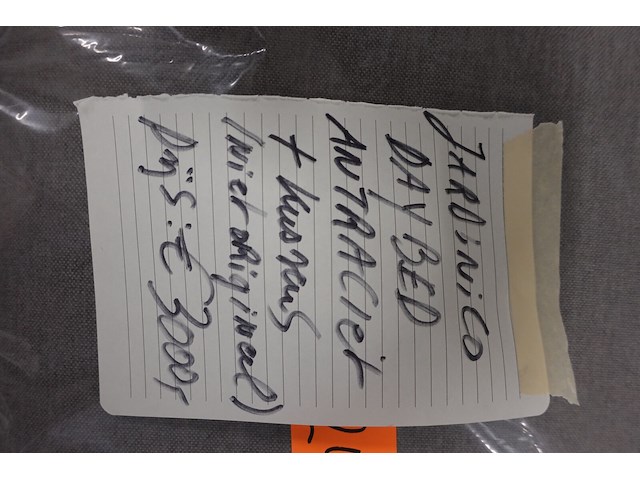 JARDiNiCO
DAYBED
ANTRACIET
+ kussens
(niet original)
Prijs: € 3000,-